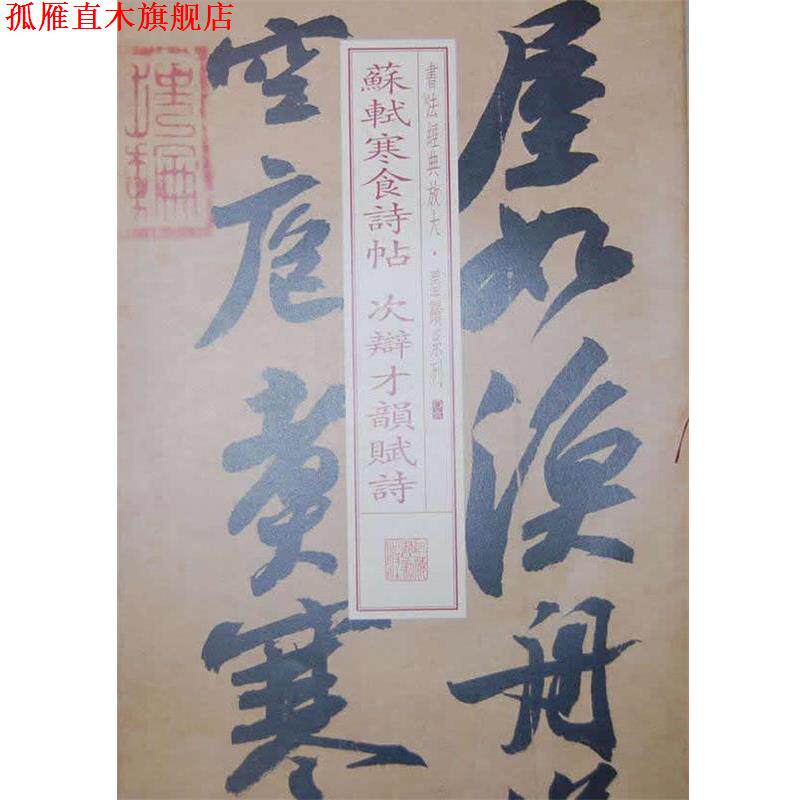 孤雁直木旗舰店
屋如漁舟
空庖煑寒
書法經典放大·墨蹟系列
蘇軾寒食詩帖 次辯才韻賦詩